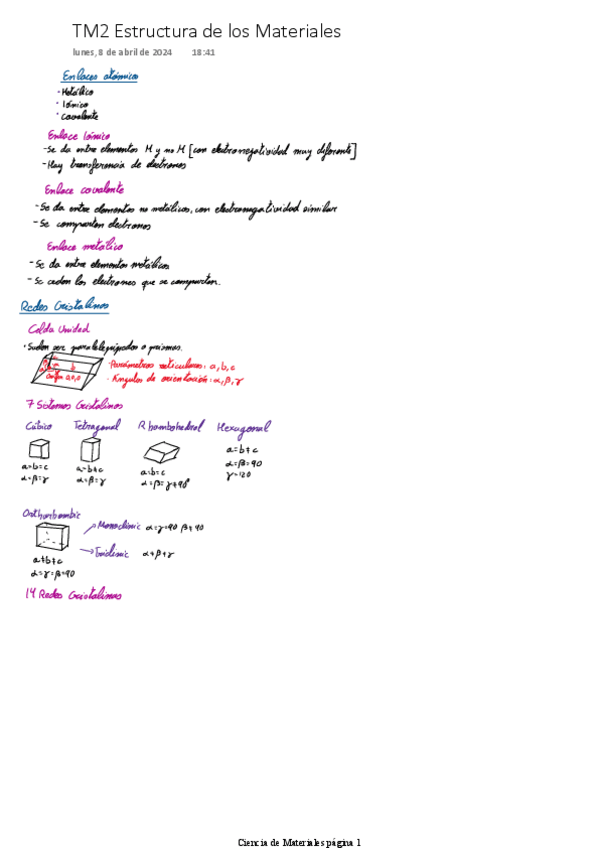 TM2 Estructura de los Materiales
lunes, 8 de abril de 2024 18:41
Enlaces atómicos
· Metálico
· Iónico
· Covalente
Enlace Iónico
- Se da entre elementos M y no M [con electronegatividad muy diferente]
- Hay transferencia de electrones
Enlace covalente
- Se da entre elementos no metálicos, con electronegatividad similar
- Se comparten electrones
Enlace metálico
- Se da entre elementos metálicos
- Se ceden los electrones que se comparten.
Redes Cristalinas
Celda Unidad
· Suelen ser paralelepípedos o prismas.
· Parámetros reticulares: a, b, c
· Ángulos de orientación: α, β, γ
7 Sistemas Cristalinos
Cúbico Tetragonal Rhombohedral Hexagonal
a=b=c a=b≠c a=b=c a=b≠c
α=β=γ α=β=γ α=β=γ≠90° α=β=90
γ=120
Orthorhombic
Monoclinic α=γ=90 β≠90
Triclinic α≠β≠γ
a≠b≠c
α=γ=β=90
14 Redes Cristalinas
Ciencia de Materiales página 1